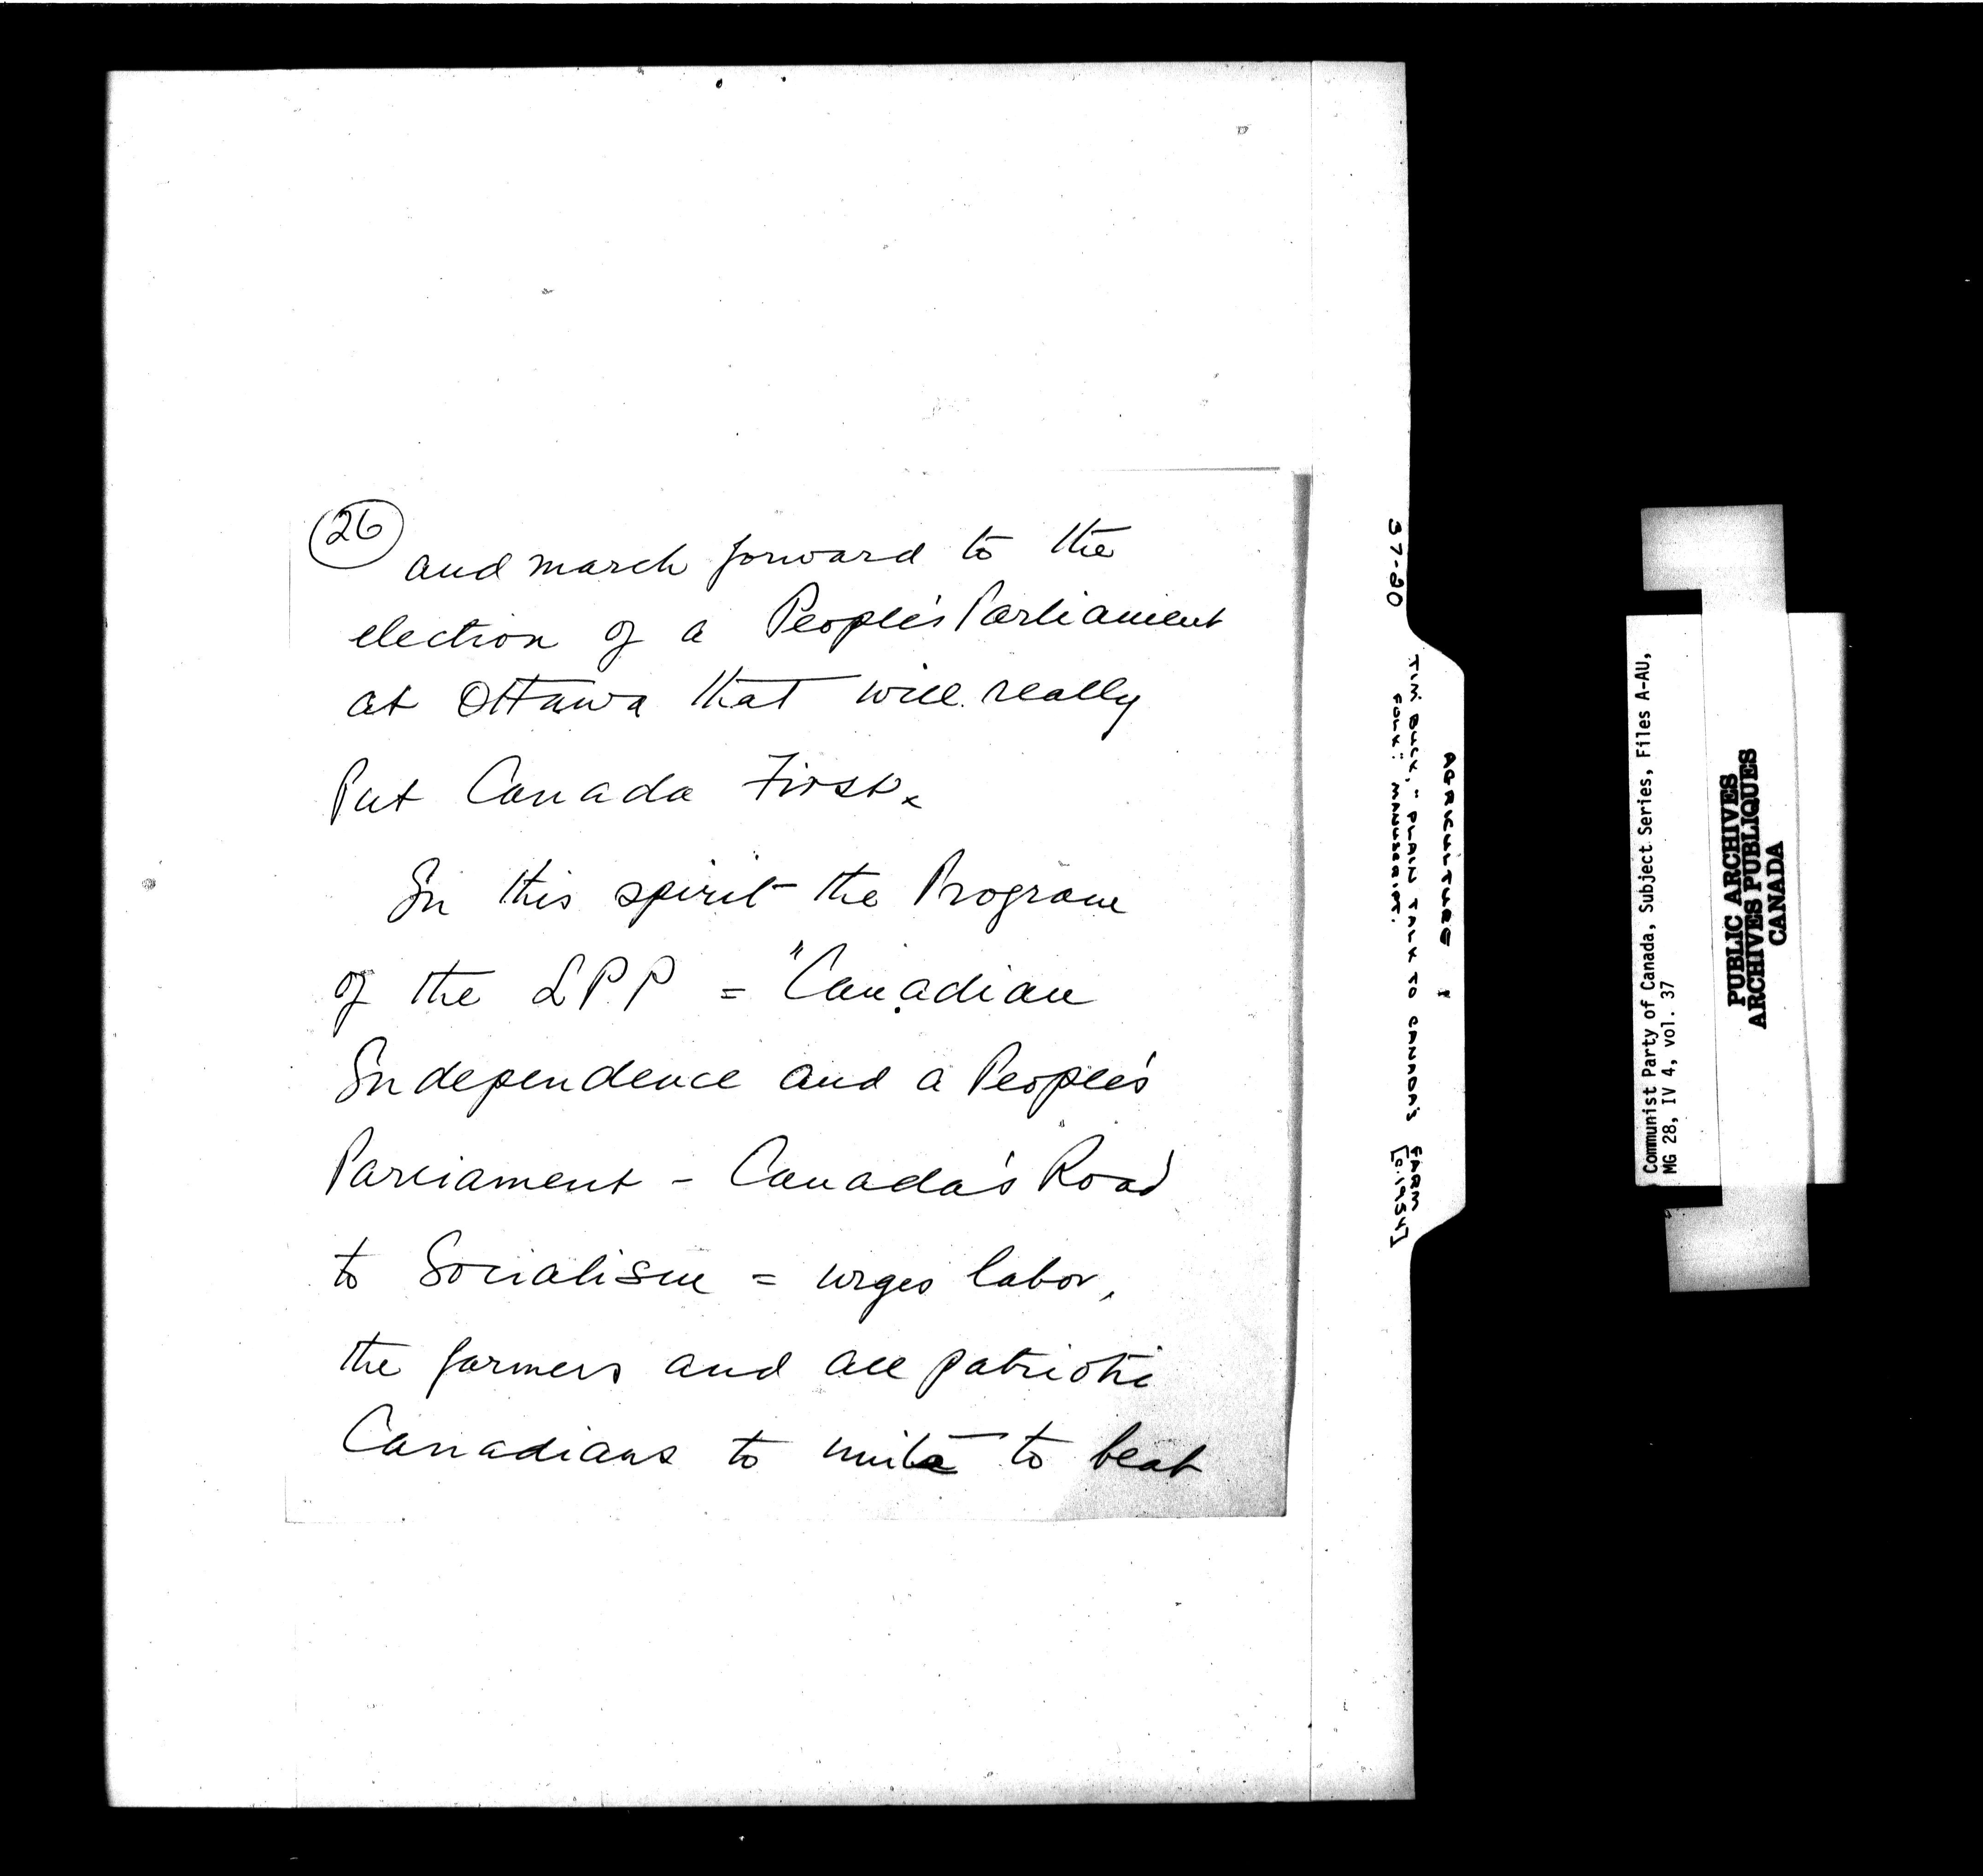 26
and march forward to the
election of a People's Parliament
at Ottawa that will really
Put Canada First.
In this spirit the Program
of the LPP = "Canadian
Independence and a People's
Parliament - Canada's Road
to Socialism = urges labor,
the farmers and all patriotic
Canadians to unite to beat
37-20
AGRICULTURE:
TIM BUCK, "PLAIN TALK TO CANADA'S FARM
FOLK": MANUSCRIPT. [c.1954]
Communist Party of Canada, Subject Series, Files A-AU,
MG 28, IV 4, vol. 37
PUBLIC ARCHIVES
ARCHIVES PUBLIQUES
CANADA